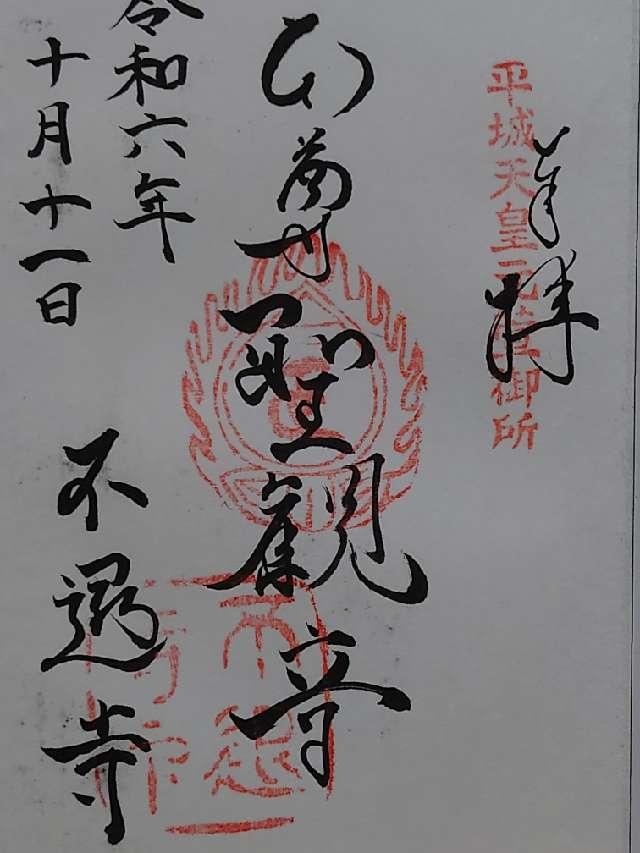 奉拝
平城天皇元萱御所
本尊聖観音
令和六年
十月十一日
不退寺
不退寺印